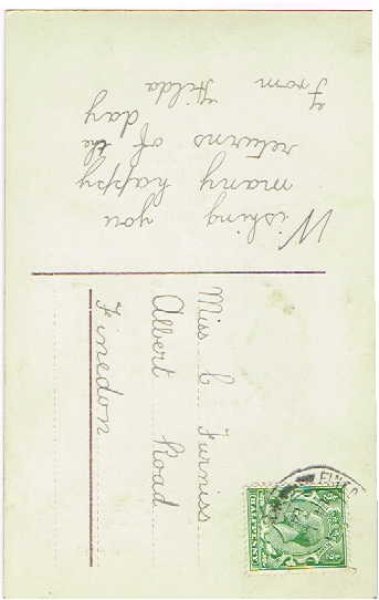 Wishing you
many happy
returns of the
day
From Hilda
Miss C Furniss
Albert Road
Finedon
HALFPENNY